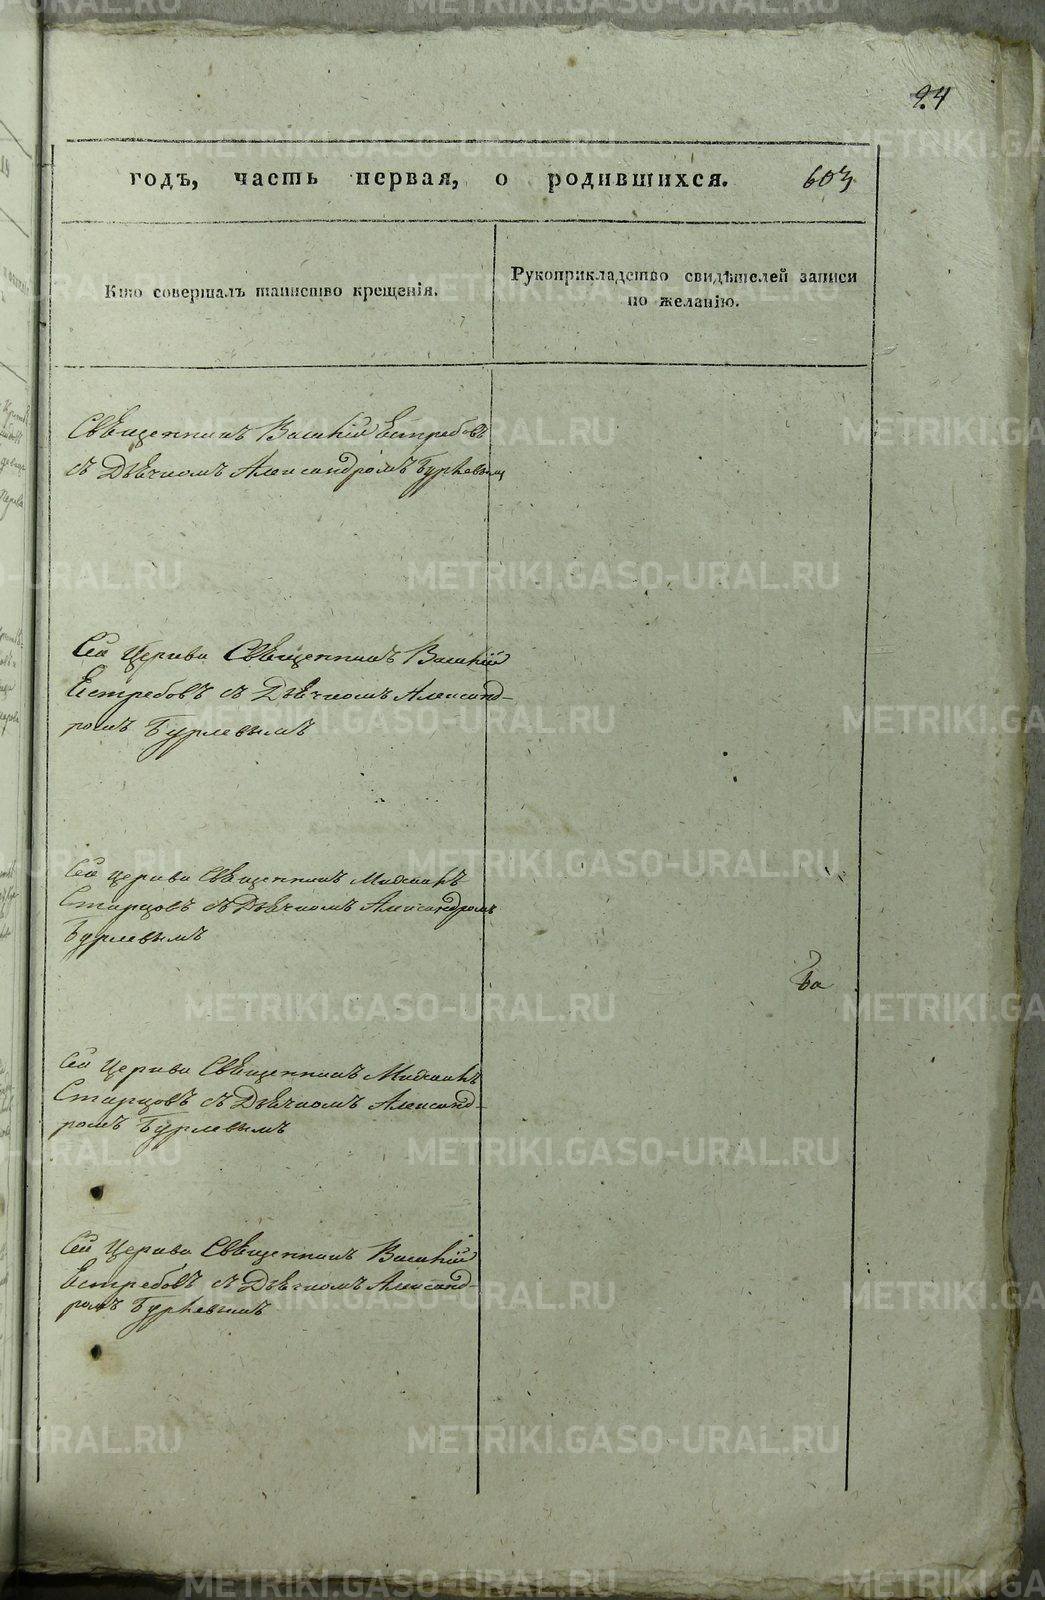 24
годъ, часть первая, о родившихся. 603
Кто совершалъ таинство крещенія.
Рукоприкладство свидѣтелей записи
по желанію.
Священникъ Василій Ястребовъ
съ Дьячкомъ Александромъ Бурлевымъ
Сей Церкви Священникъ Василій
Ястребовъ съ Дьячкомъ Александ-
ромъ Бурлевымъ
Сей Церкви Священникъ Михаилъ
Старцовъ съ Дьячкомъ Александромъ
Бурлевымъ
Сей Церкви Священникъ Михаилъ
Старцовъ съ Дьячкомъ Александ-
ромъ Бурлевымъ
Сей Церкви Священникъ Василій
Ястребовъ съ Дьячкомъ Александ-
ромъ Бурлевымъ
METRIKI.GASO-URAL.RU